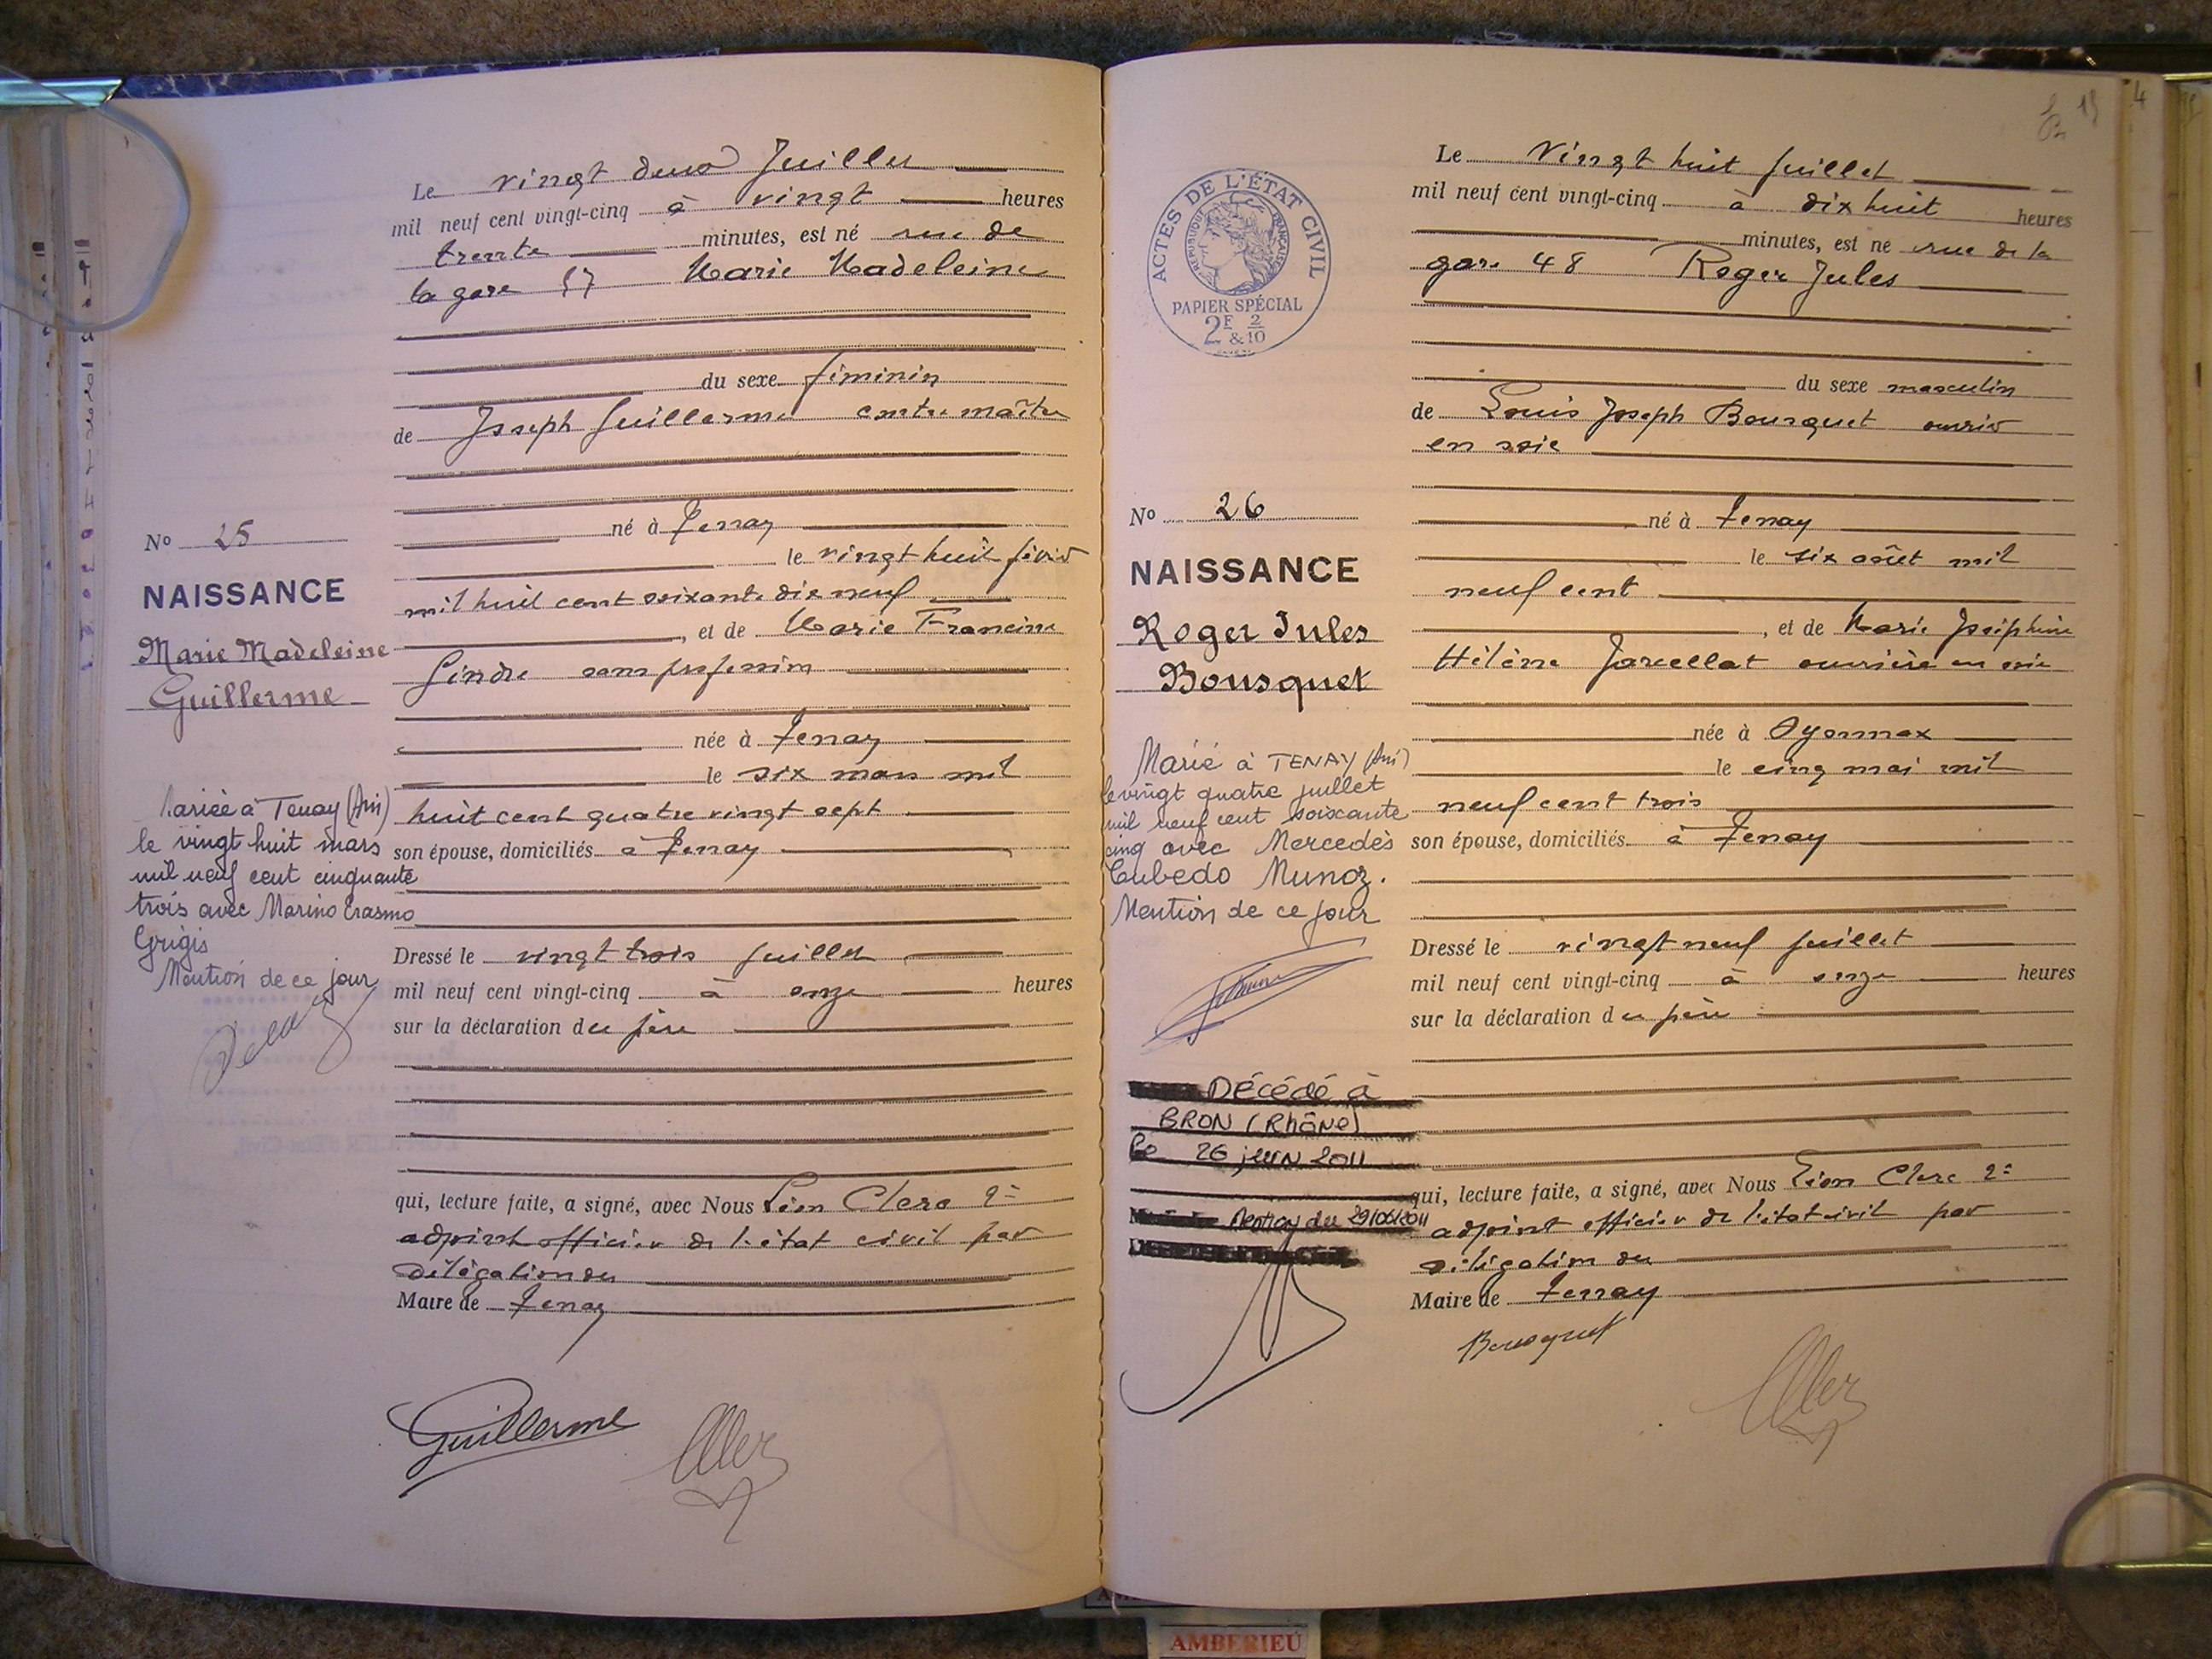 Le vingt deux Juillet
mil neuf cent vingt-cinq à vingt heures
trente minutes, est né rue de
la gare 57 Marie Madeleine
du sexe féminin
de Joseph Guillerme contre maître
né à Tenay
le vingt huit févier
mil huit cent soixante dix neuf
, et de Marie Francine
Gindre sans profession
née à Tenay
le six mars mil
huit cent quatre vingt sept
son épouse, domiciliés à Tenay
Dressé le vingt trois Juillet
mil neuf cent vingt-cinq à onze heures
sur la déclaration du père
qui, lecture faite, a signé, avec Nous Léon Clerc 2e
adjoint officier de l'état civil par
délégation du
Maire de Tenay
Guillerme
No 25
NAISSANCE
Marie Madeleine
Guillerme
Mariée à Tenay (Ain)
le vingt huit mars
mil neuf cent cinquante
trois avec Marino Erasmo
Grigis
Mention de ce jour
ACTES DE L'ÉTAT CIVIL
RÉPUBLIQUE FRANÇAISE
PAPIER SPÉCIAL
2F & 2/10
No 26
NAISSANCE
Roger Jules
Bousquet
Marié à TENAY (Ain)
le vingt quatre juillet
mil neuf cent soixante
cinq avec Mercedès
Cubedo Munoz.
Mention de ce jour
Décédé à
BRON (Rhône)
Le 26 juin 2011
Mention du 29/06/2011
Le Vingt huit Juillet
mil neuf cent vingt-cinq à dix huit heures
minutes, est né rue de la
gare 48 Roger Jules
du sexe masculin
de Louis Joseph Bousquet ouvrier
en soie
né à Tenay
le six août mil
neuf cent
, et de Marie Joséphine
Hélène Jarcellat ouvrière en soie
née à Oyonnax
le cinq mai mil
neuf cent trois
son épouse, domiciliés à Tenay
Dressé le vingt neuf Juillet
mil neuf cent vingt-cinq à onze heures
sur la déclaration du père
qui, lecture faite, a signé, avec Nous Léon Clerc 2e
adjoint officier de l'état civil par
délégation du
Maire de Tenay
Bousquet
AMBERIEU